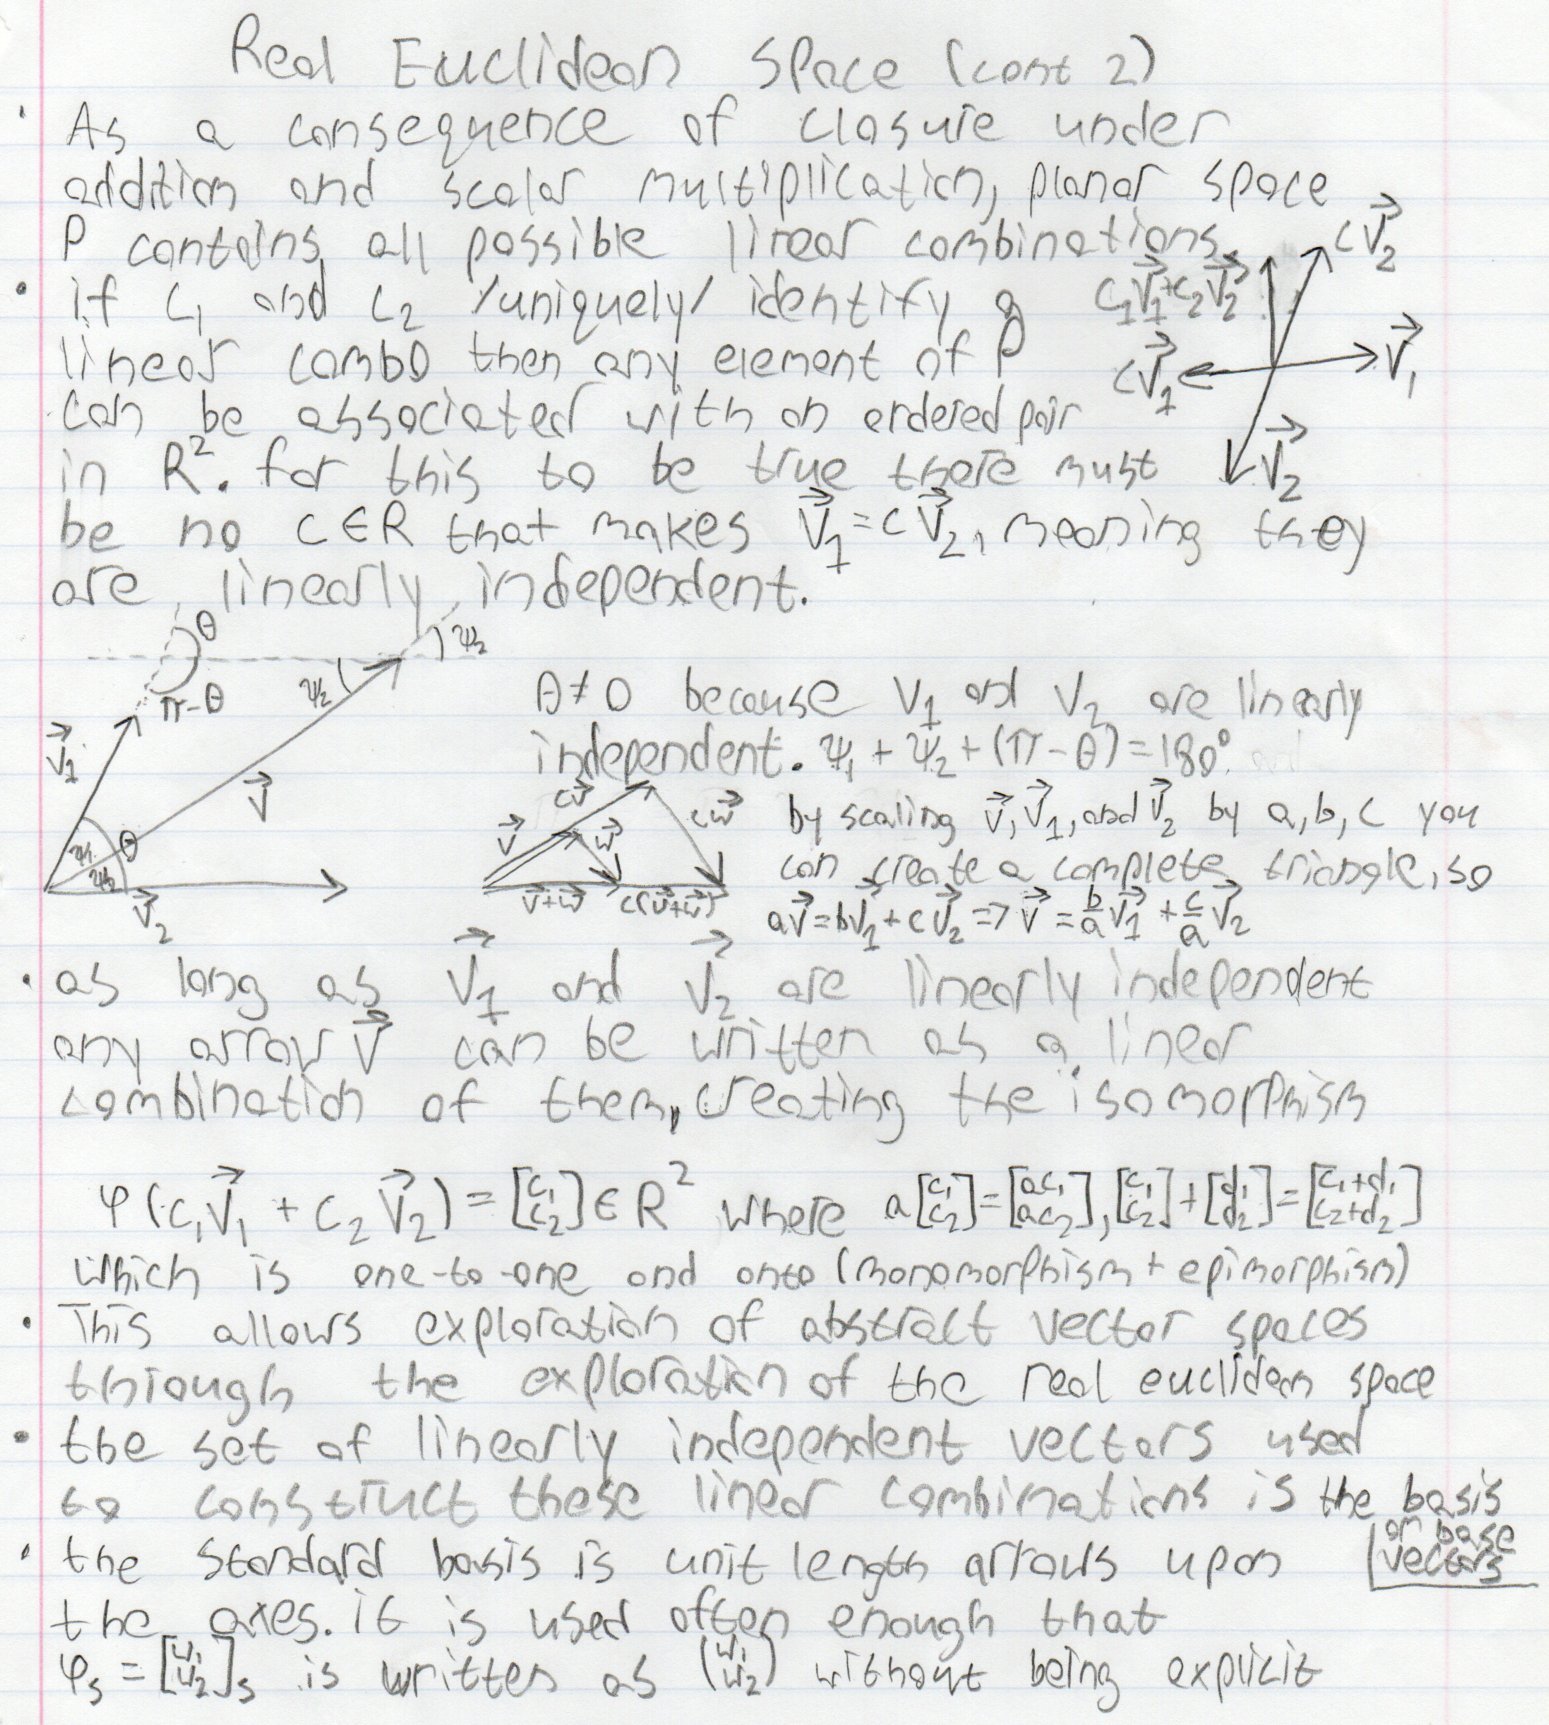 Real Euclidean Space (cont 2)
• As a consequence of closure under
addition and scalar multiplication, planar space
P contains all possible linear combinations.
• if C₁ and C₂ /uniquely/ identify a
linear combo then any element of P
can be associated with an ordered pair
in R². for this to be true there must
be no C∈R that makes V⃗₁=cV⃗₂, meaning they
are linearly independent.
cV⃗₂
c₁V⃗₁+c₂V⃗₂
cV⃗₁
V⃗₁
V⃗₂
θ
ψ₂
ψ₂
π-θ
V⃗₁
V⃗
ψ₁
θ
ψ₂
V⃗₂
θ≠0 because V₁ and V₂ are linearly
independent. ψ₁ + ψ₂ + (π-θ) = 180°
cv⃗
cw⃗
v⃗
w⃗
v⃗+w⃗
c(v⃗+w⃗)
by scaling v⃗, v⃗₁, and v⃗₂ by a, b, c you
can create a complete triangle, so
av⃗=bv⃗₁+cv⃗₂ => v⃗ = b/a v⃗₁ + c/a v⃗₂
• as long as V⃗₁ and V⃗₂ are linearly independent
any arrow V⃗ can be written as a linear
combination of them, creating the isomorphism
φ(c₁V⃗₁ + c₂V⃗₂) = [c₁ c₂] ∈ R² where a[c₁ c₂]=[ac₁ ac₂], [c₁ c₂]+[d₁ d₂]=[c₁+d₁ c₂+d₂]
which is one-to-one and onto (monomorphism + epimorphism)
• This allows exploration of abstract vector spaces
through the exploration of the real euclidean space
• the set of linearly independent vectors used
to construct these linear combinations is the basis
or base
vectors
• the standard basis is unit length arrows upon
the axes. it is used often enough that
φₛ = [w₁ w₂]ₛ is written as (w₁ w₂) without being explicit